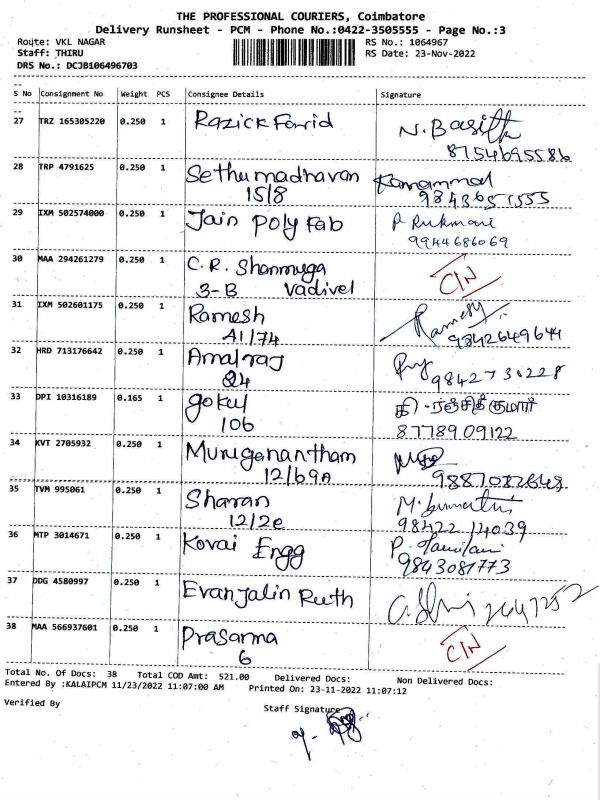 THE PROFESSIONAL COURIERS, Coimbatore
Delivery Runsheet - PCM - Phone No.:0422-3505555 - Page No.:3
Route: VKL NAGAR RS No.: 1064967
Staff: THIRU RS Date: 23-Nov-2022
DRS No.: DCJB106496703
S No Consignment No Weight PCS Consignee Details Signature
27 TRZ 165305220 0.250 1 Razick Farid N. Basith
8754695586
28 TRP 4791625 0.250 1 Sethumadhavan
15/8
29 IXM 502574000 0.250 1 Jain Poly Fab P. Rukmani
9944686069
30 MAA 294261279 0.250 1 C.R. Shanmuga C/N
3-B Vadivel
31 IXM 502601175 0.250 1 Ramesh Ramesh
A1/74 9842649644
32 HRD 713176642 0.250 1 Amalraj
24 9842730228
33 DPI 10316189 0.165 1 gokul தி -ரஞ்சித்குமார்
106 8778909122
34 KVT 2705932 0.250 1 Muruganantham
12/69A 9887082648
35 TVM 995061 0.250 1 Sharan
12/2e 98422 14039
36 MTP 3014671 0.250 1 Kovai Engg
9843081773
37 DDG 4580997 0.250 1 Evanjalin Ruth
38 MAA 566937601 0.250 1 Prasanna C/N
6
Total No. Of Docs: 38 Total COD Amt: 521.00 Delivered Docs: Non Delivered Docs:
Entered By :KALAIPCM 11/23/2022 11:07:00 AM Printed On: 23-11-2022 11:07:12
Verified By Staff Signature